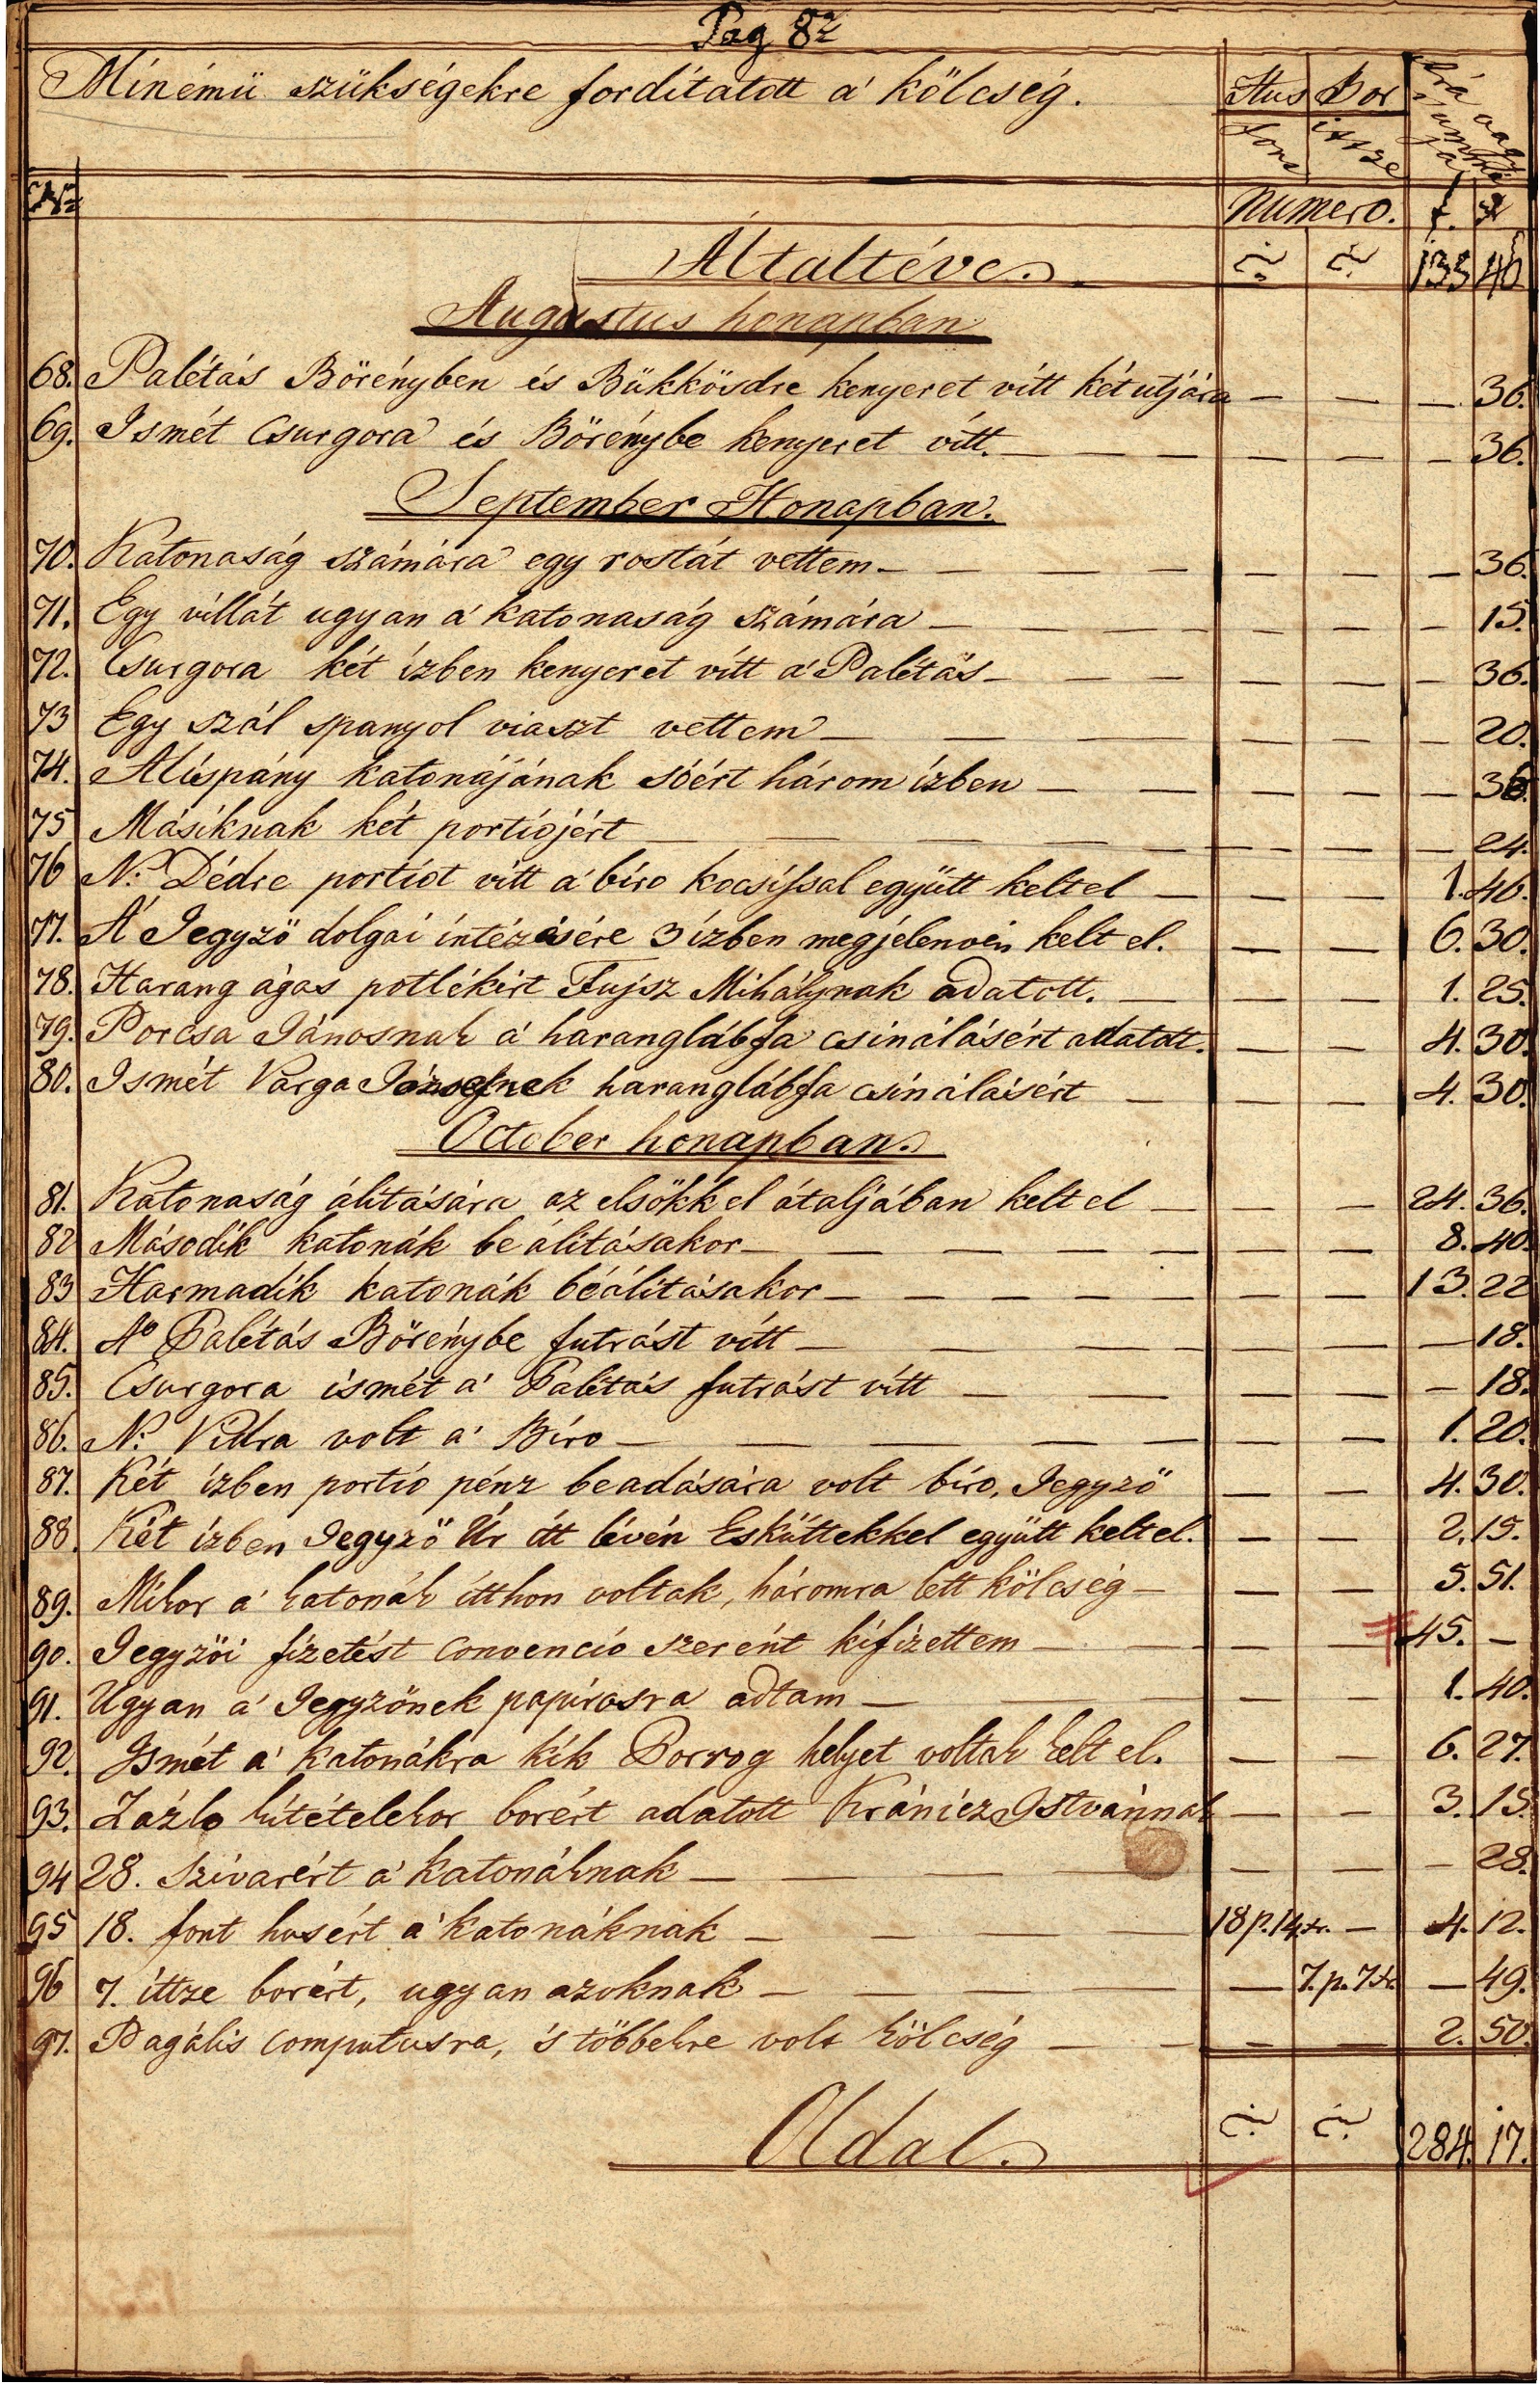 Pag 82
Minémű szükségekre fordítatott a' kőlcség.
Hus Bor
font ittze
Ára vagy summája
Nº
Numero. f. x
Általtéve. 133 40
Augustus honapban
68. Palétás Börényben és Bükkösdre kenyeret vitt két utjára — — — 36.
69. Ismét Csurgora és Börénybe kenyeret vitt. — — — 36.
September Honapban.
70. Katonaság számára egy rostát vettem — — — 36.
71. Egy villát ugyan a' katonaság számára — — — 15.
72. Csurgora két izben kenyeret vitt a' Palétás — — — 36.
73 Egy szál spanyol viaszt vettem — — — 20.
74. Alispány katonájának sóért három ízben — — — 36.
75 Másiknak két portiojért — — — 24.
76 N: Dédre portiot vitt a' biro kocsissal együtt kelt el — — 1. 46.
77. A' Jegyző dolgai intézésére 3 ízben megjelenvén kelt el. — — 6. 30.
78. Harang ágas potlékért Fujsz Mihálynak adatott. — — 1. 25.
79. Porcsa Jánosnak a' haranglábfa csinálásért adatott. — — 4. 30.
80. Ismét Varga Józsefnek haranglábfa csinálásért — — 4. 30.
October honapban.
81. Katonaság álitására az elsőkkel átaljában kelt el — — 24. 36.
82 Második katonák beálitásakor — — 8. 40.
83 Harmadik katonák béálitásakor — — 13. 22
84. Aº Palétás Börénybe futrást vitt — — — 18.
85. Csurgora ismét a' Palétás futrást vitt — — — 18.
86. N: Vidra volt a' Biro — — 1. 20.
87. Két ízben portio pénz beadására volt biro, Jegyző — — 4. 30.
88. Két ízben Jegyző Úr itt lévén Esküttekkel együtt kelt el. — — 2. 15.
89. Mikor a' katonák itthon voltak, háromra lett kőlcség — — — 5. 51.
90. Jegyzői fizetést convenció szerént kifizettem — — 45. —
91. Ugyan a' Jegyzőnek papirosra adtam — — 1. 40.
92. Ismét a' katonákra kik Porrog helyet voltak kelt el. — — 6. 27.
93. Zázlo kitételekor borért adatott Krániez Istvánnak — — 3. 15.
94 28. Szivarért a' katonáknak — — — 28.
95 18. font husért a' katonáknak — 18 p. 14 xr. — 4. 12.
96 7. ittze borért, ugyan azoknak — — 7. p. 7 xr — 49.
97. Pagális computusra, 's többekre volt kőlcség — — — 2. 50.
Oldal. 284. 17.